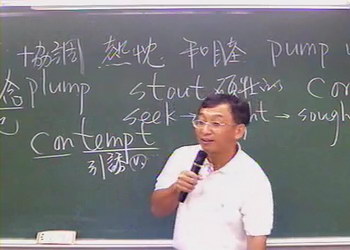 協調 熱忱 和睦 pump
念 plump stout 硬性的 con
seek → → sough
contempt
引誘的